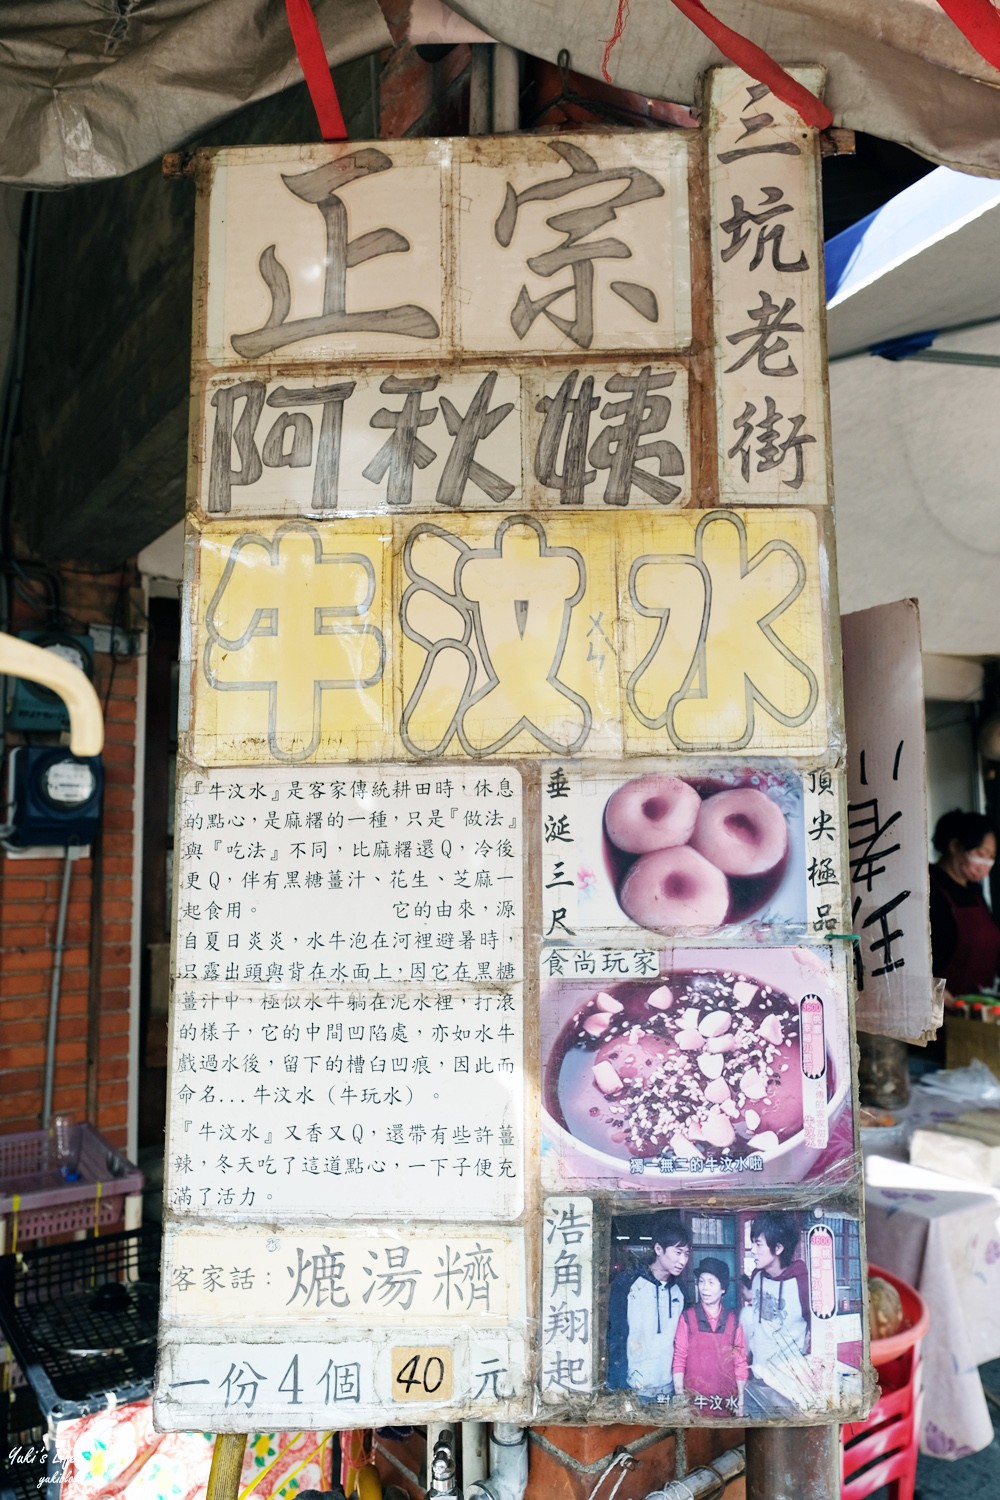 三坑老街
正宗
阿秋姨
牛汶水
ㄨㄣ
『牛汶水』是客家傳統耕田時，休息
的點心，是麻糬的一種，只是『做法』
與『吃法』不同，比麻糬還Q，冷後
更Q，伴有黑糖薑汁、花生、芝麻一
起食用。 它的由來，源
自夏日炎炎，水牛泡在河裡避暑時，
只露出頭與背在水面上，因它在黑糖
薑汁中，極似水牛躺在泥水裡，打滾
的樣子，它的中間凹陷處，亦如水牛
戲過水後，留下的槽臼凹痕，因此而
命名...牛汶水（牛玩水）。
『牛汶水』又香又Q，還帶有些許薑
辣，冬天吃了這道點心，一下子便充
滿了活力。
客家話：熝湯糈
一份4個 40 元
垂涎三尺
頂尖極品
食尚玩家
獨一無二的牛汶水啦
浩角翔起
牛汶水
老
Yuki's Life